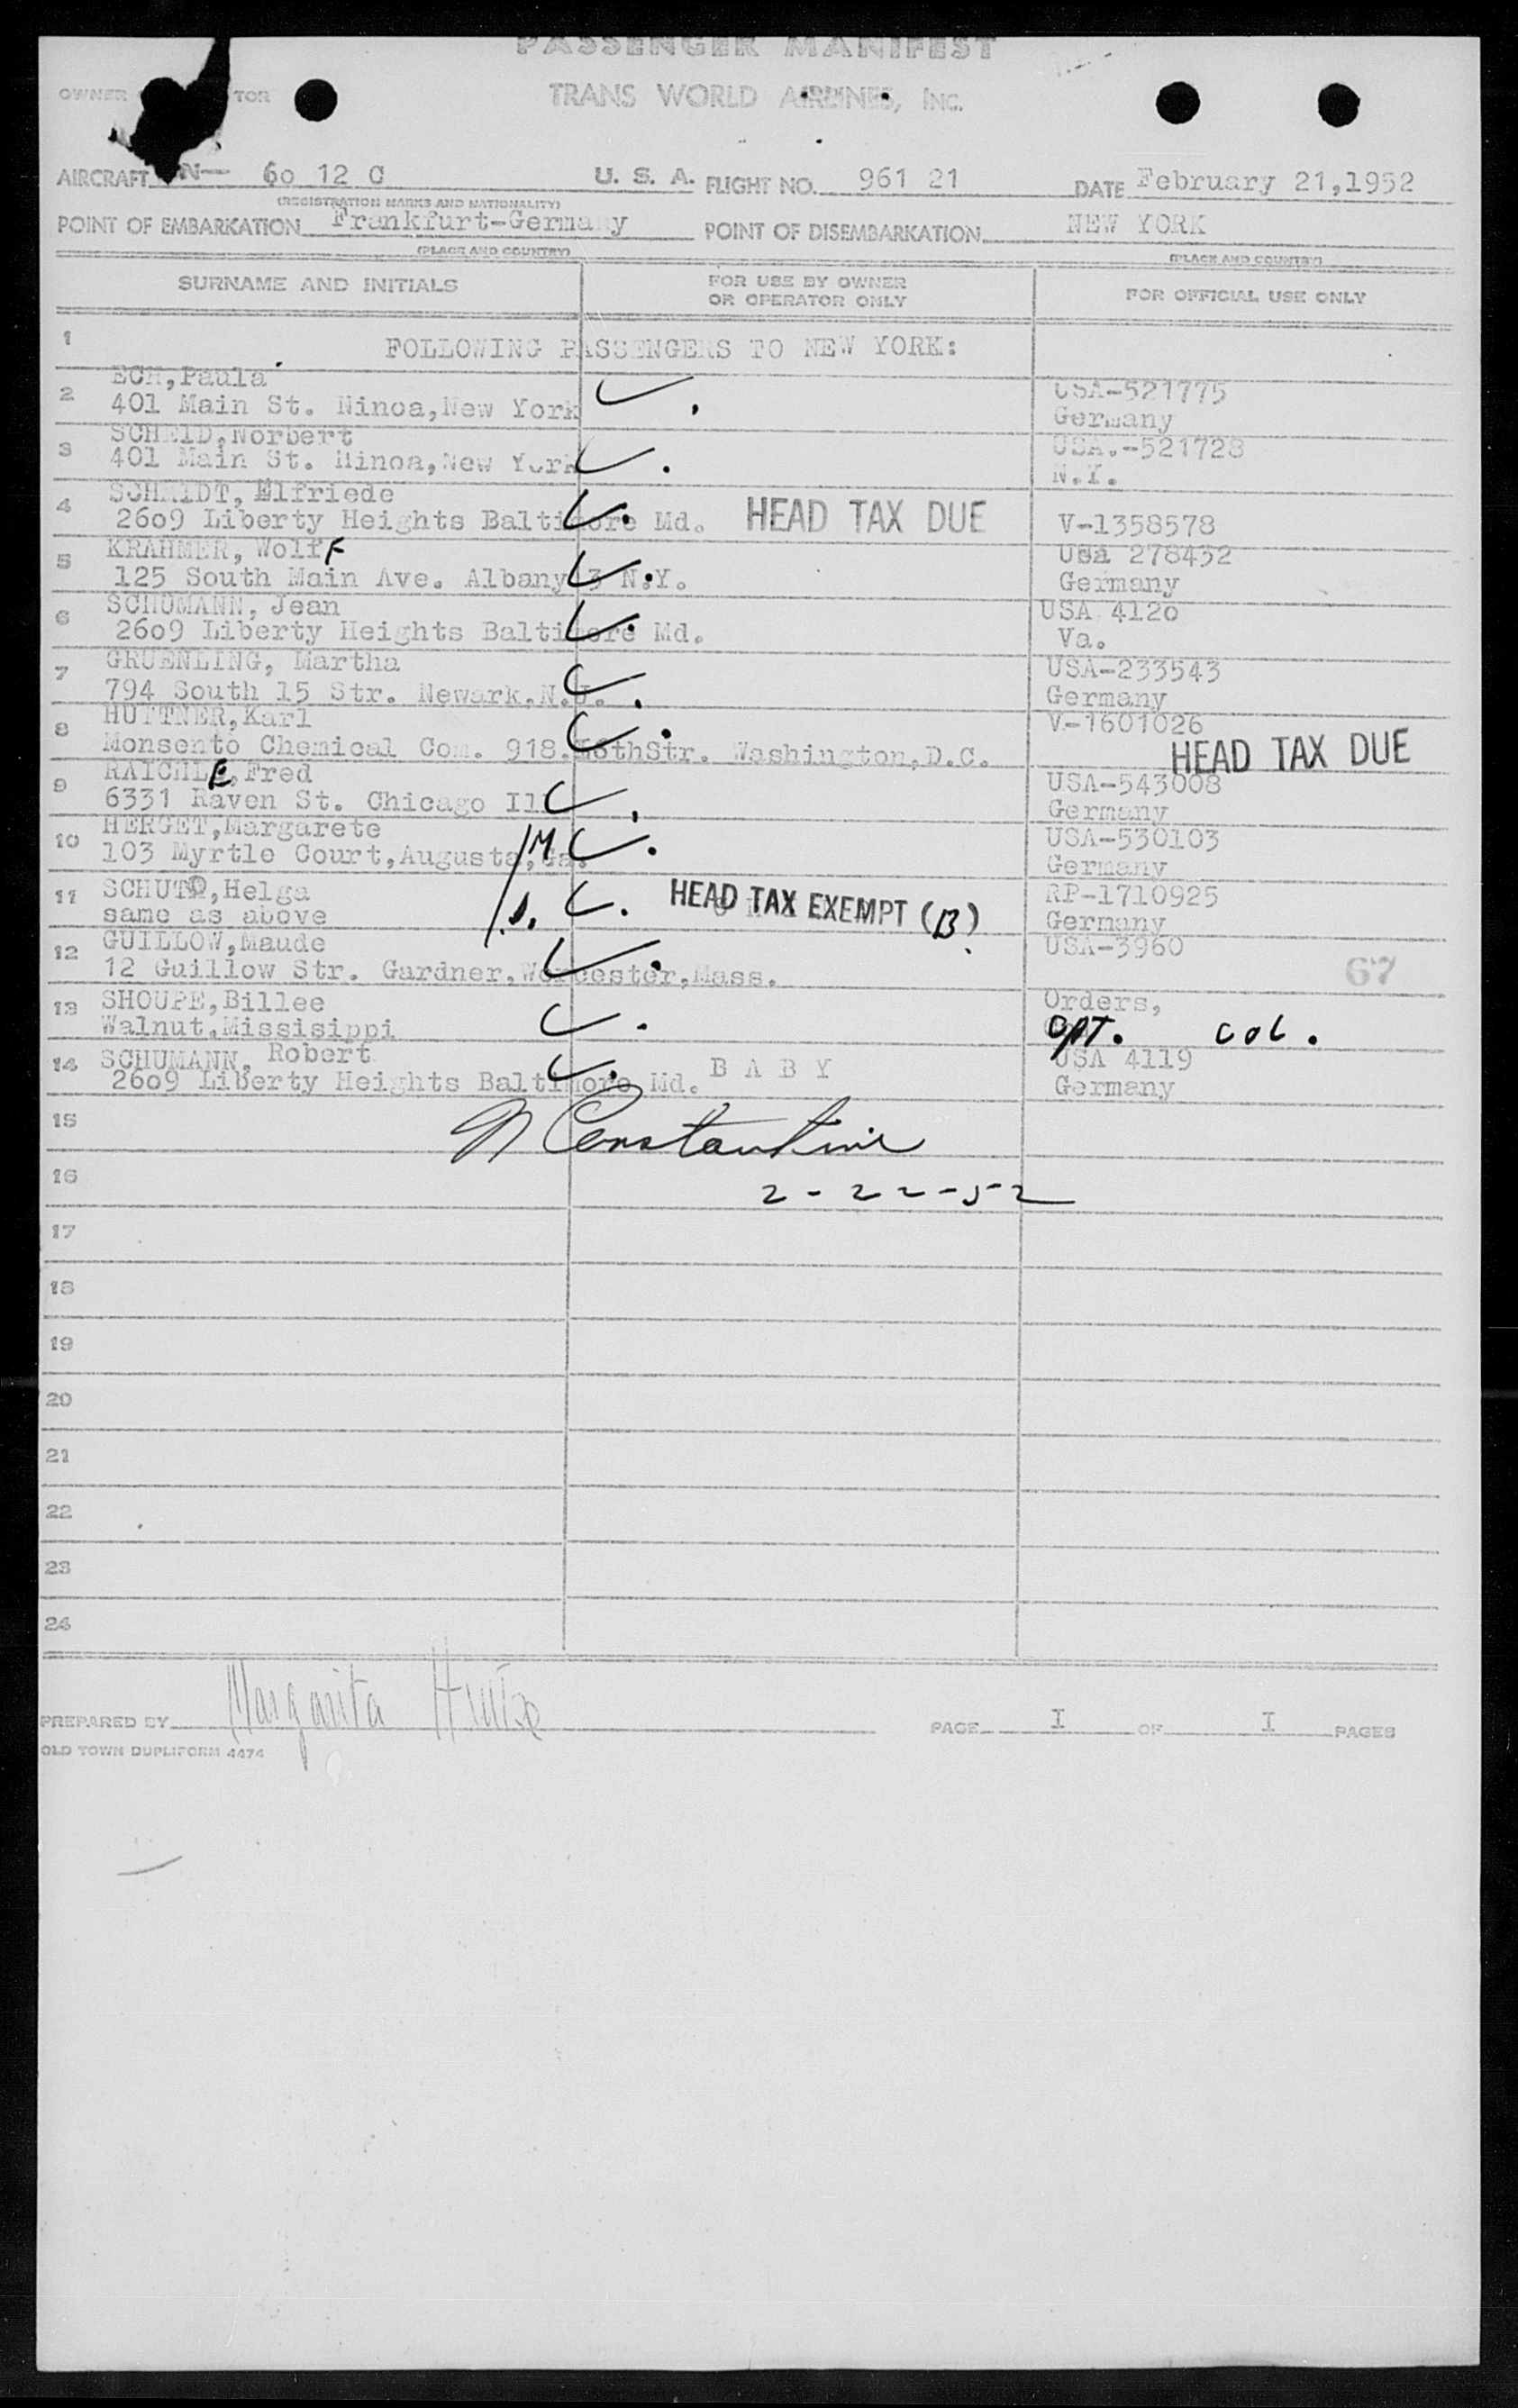 PASSENGER MANIFEST
OWNER TOR
TRANS WORLD AIRLINES, INC.
AIRCRAFT N— 6o 12 C U. S. A. FLIGHT NO. 961 21 DATE February 21,1952
(REGISTRATION MARKS AND NATIONALITY)
POINT OF EMBARKATION Frankfurt-Germany POINT OF DISEMBARKATION NEW YORK
(PLACE AND COUNTRY) (PLACE AND COUNTRY)
SURNAME AND INITIALS FOR USE BY OWNER OR OPERATOR ONLY FOR OFFICIAL USE ONLY
1 FOLLOWING PASSENGERS TO NEW YORK:
2 ECH, Paula USA-521775
401 Main St. Ninoa, New York Germany
3 SCHEID, Norbert USA.-521728
401 Main St. Minoa, New York N.Y.
4 SCHMIDT, Elfriede
2609 Liberty Heights Baltimore Md. HEAD TAX DUE V-1358578
5 KRAHMER, Wolff Usa 278432
125 South Main Ave. Albany 3 N.Y. Germany
6 SCHUMANN, Jean USA 4120
2609 Liberty Heights Baltimore Md. Va.
7 GRUENLING, Martha USA-233543
794 South 15 Str. Newark, N.J. Germany
8 HUTTNER, Karl V-1601026
Monsento Chemical Com. 918. 16thStr. Washington, D.C. HEAD TAX DUE
9 RAICHLE, Fred USA-543008
6331 Raven St. Chicago Ill Germany
10 HERGET, Margarete USA-530103
103 Myrtle Court, Augusta, Ga. /M Germany
11 SCHUT, Helga HEAD TAX EXEMPT (B) RP-1710925
same as above /s. Germany
12 GUILLOW, Maude USA-3960
12 Guillow Str. Gardner, Worcester, Mass. 67
13 SHOUPE, Billee Orders,
Walnut, Missisippi OPT. COL.
14 SCHUMANN, Robert BABY USA 4119
2609 Liberty Heights Baltimore Md. Germany
15 N Constantine
16 2-22-52
17
18
19
20
21
22
23
24
PREPARED BY Margarita PAGE I OF I PAGES
OLD TOWN DUPLIFORM 4474